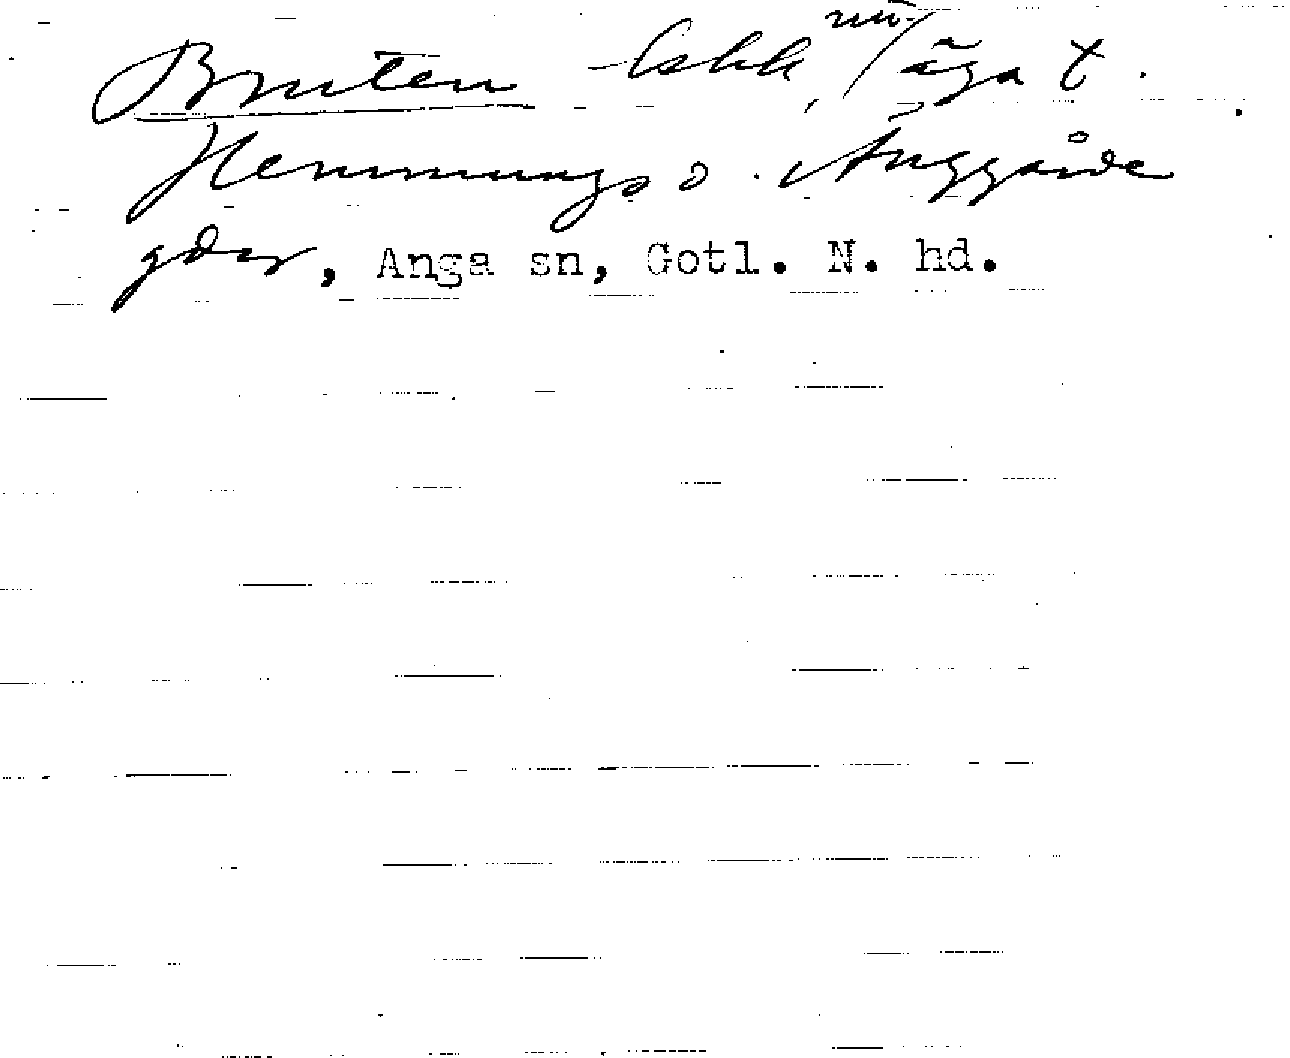 Bruten - bskk, nu/ äga t.
Hemmungs o. Änggårde
gdar, Anga sn, Gotl. N. hd.